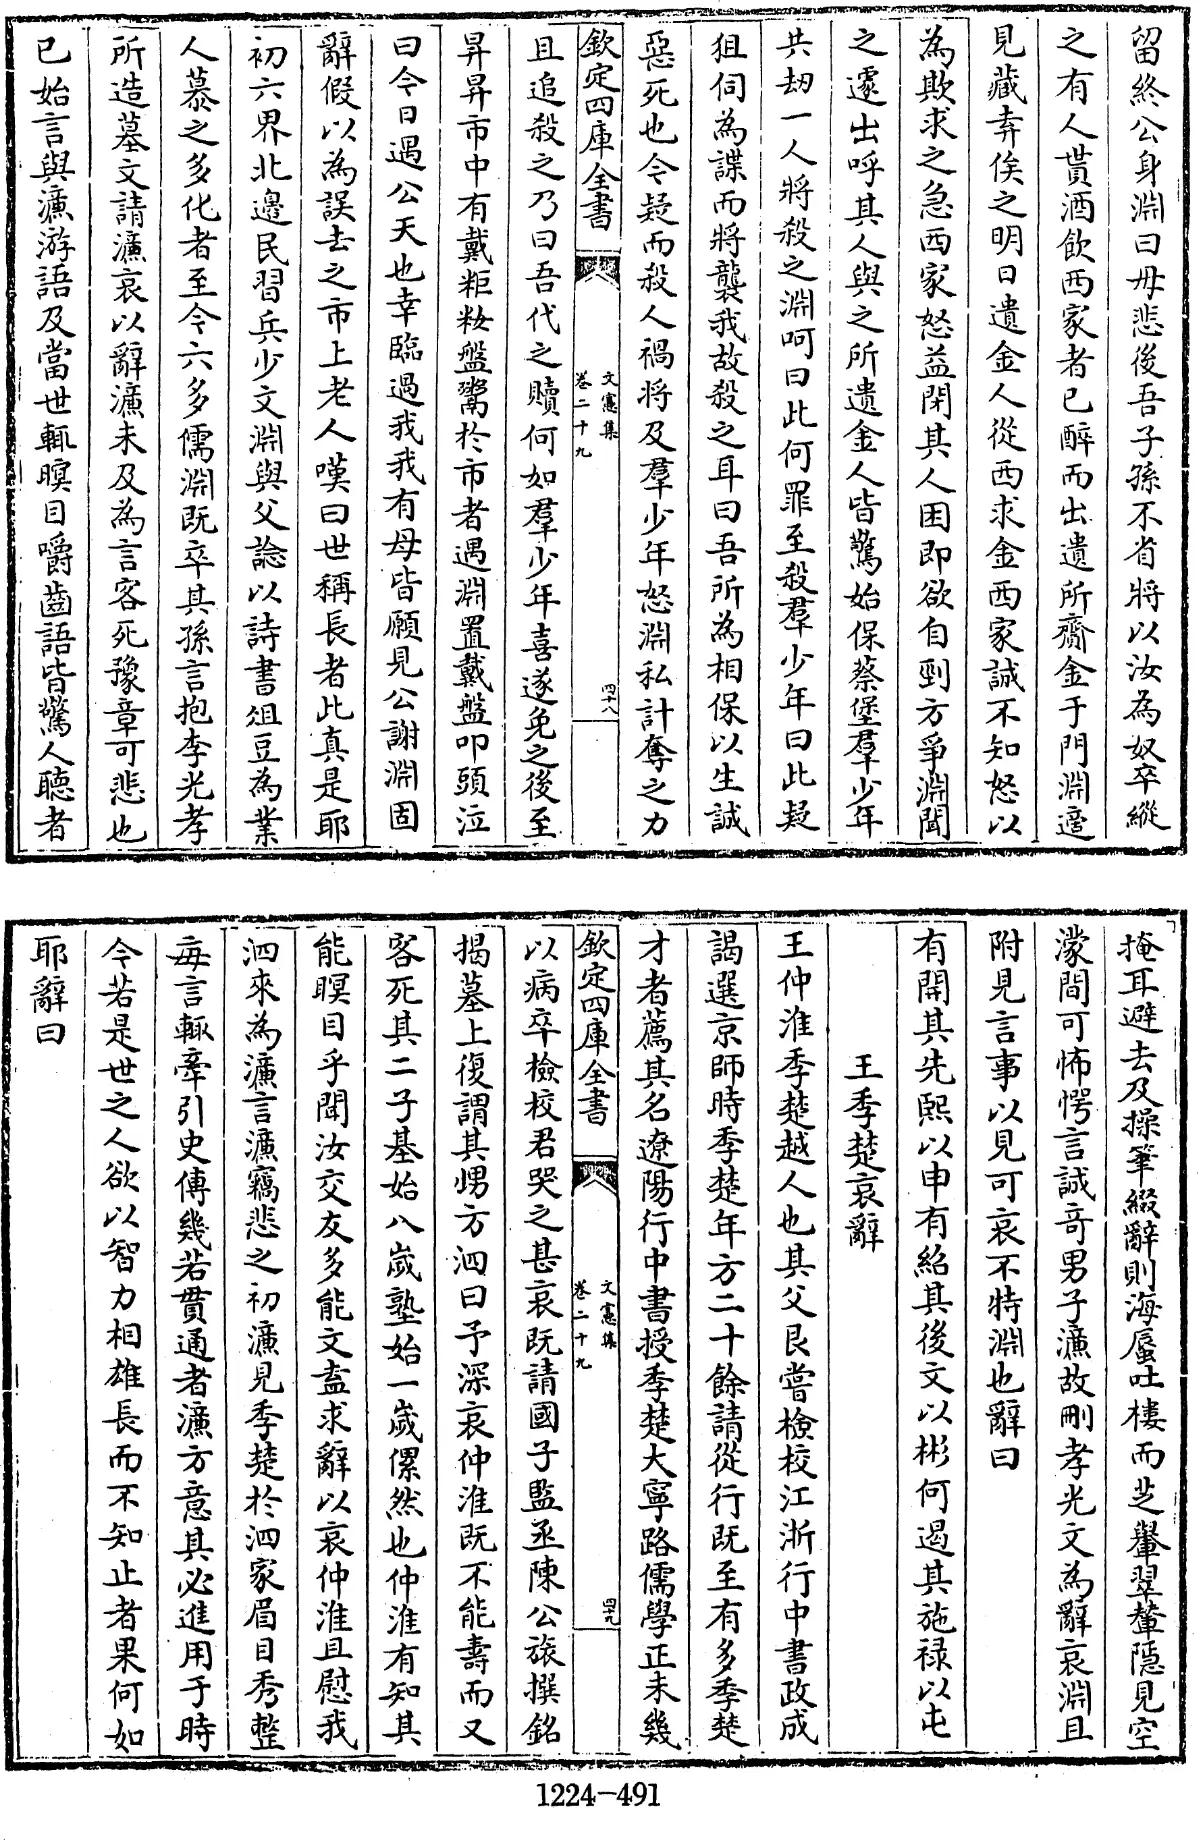 留終公身淵曰毋悲後吾子孫不省將以汝為奴卒縱
之有人貰酒飲西家者已醉而出遺所齎金于門淵適
見藏弆俟之明日遺金人從西求金西家誠不知怒以
為欺求之急西家怒益閉其人困即欲自剄方爭淵聞
之遽出呼其人與之所遺金人皆驚始保蔡堡羣少年
共刼一人將殺之淵呵曰此何罪至殺羣少年曰此疑
狙伺為諜而將襲我故殺之耳曰吾所為相保以生誠
惡死也今疑而殺人禍將及羣少年怒淵私計奪之力
欽定四庫全書
文憲集
卷二十九
四十八
且追殺之乃曰吾代之贖何如羣少年喜遂免之後至
昇昇市中有戴粔籹盤鬻於市者遇淵置戴盤叩頭泣
曰今日遇公天也幸臨過我我有母皆願見公謝淵固
辭假以為誤去之市上老人嘆曰世稱長者此真是耶
初六界北邊民習兵少文淵與父諗以詩書俎豆為業
人慕之多化者至今六多儒淵既卒其孫言抱李光孝
所造墓文請濂哀以辭濂未及為言客死豫章可悲也
已始言與濂游語及當世輒瞑目嚼齒語皆驚人聽者
掩耳避去及操筆綴辭則海蜃吐樓而芝輦翠蕤隱見空
濛間可怖愕言誠奇男子濂故刪孝光文為辭哀淵且
附見言事以見可哀不特淵也辭曰
有開其先熙以申有紹其後文以彬何遏其施祿以屯
王季楚哀辭
王仲淮季楚越人也其父艮嘗檢校江浙行中書政成
謁選京師時季楚年方二十餘請從行既至有多季楚
才者薦其名遼陽行中書授季楚大寧路儒學正未幾
欽定四庫全書
文憲集
卷二十九
四十九
以病卒檢校君哭之甚哀既請國子監丞陳公旅撰銘
揭墓上復謂其甥方泗曰予深哀仲淮既不能壽而又
客死其二子基始八歲塾始一歲儽然也仲淮有知其
能瞑目乎聞汝交友多能文盍求辭以哀仲淮且慰我
泗來為濂言濂竊悲之初濂見季楚於泗家眉目秀整
每言輒牽引史傳幾若貫通者濂方意其必進用于時
今若是世之人欲以智力相雄長而不知止者果何如
耶辭曰
1224-491